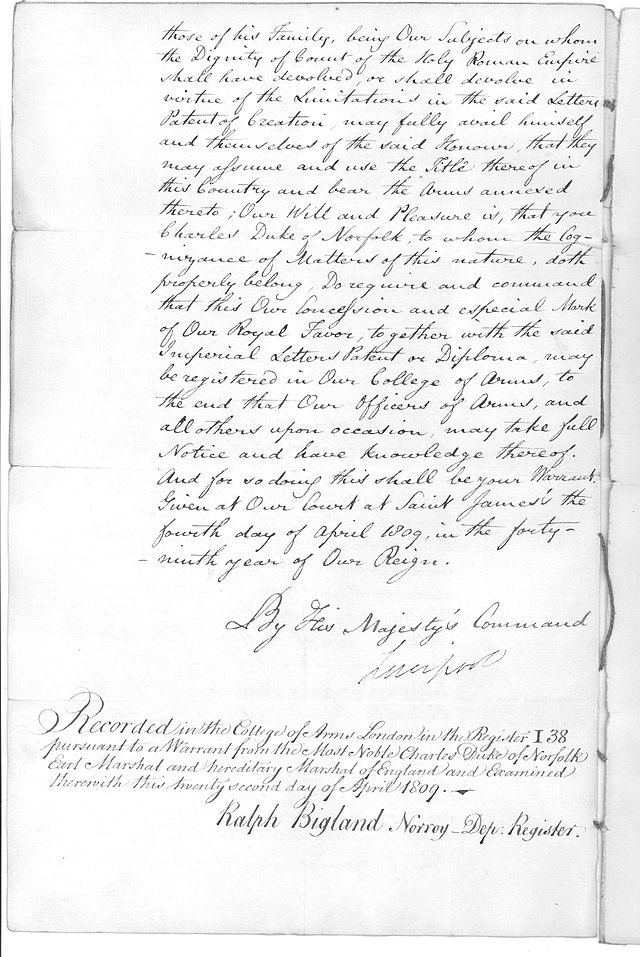 those of his Family, being Our Subjects on whom
the Dignity of Count of the Holy Roman Empire
shall have devolved, or shall devolve in
virtue of the Limitations in the said Letters
Patent of Creation, may fully avail himself
and themselves of the said Honour, that they
may assume and use the Title thereof in
this Country and bear the Arms annexed
thereto; Our Will and Pleasure is, that you
Charles Duke of Norfolk, to whom the Cog-
-nizance of Matters of this nature, doth
properly belong, Do require and command
that this Our Concession and especial Mark
of Our Royal Favor, together with the said
Imperial Letters Patent or Diploma, may
be registered in Our College of Arms, to
the end that Our Officers of Arms, and
all others upon occasion, may take full
Notice and have knowledge thereof.
And for so doing this shall be your Warrant.
Given at Our Court at Saint James's the
fourth day of April 1809, in the forty-
-ninth year of Our Reign.
By His Majesty's Command
Liverpool
Recorded in the College of Arms London in the Register I 38
pursuant to a Warrant from the Most Noble Charles Duke of Norfolk
Earl Marshal and hereditary Marshal of England and Examined
therewith this twenty second day of April 1809.—
Ralph Bigland Norroy - Dep: Register.